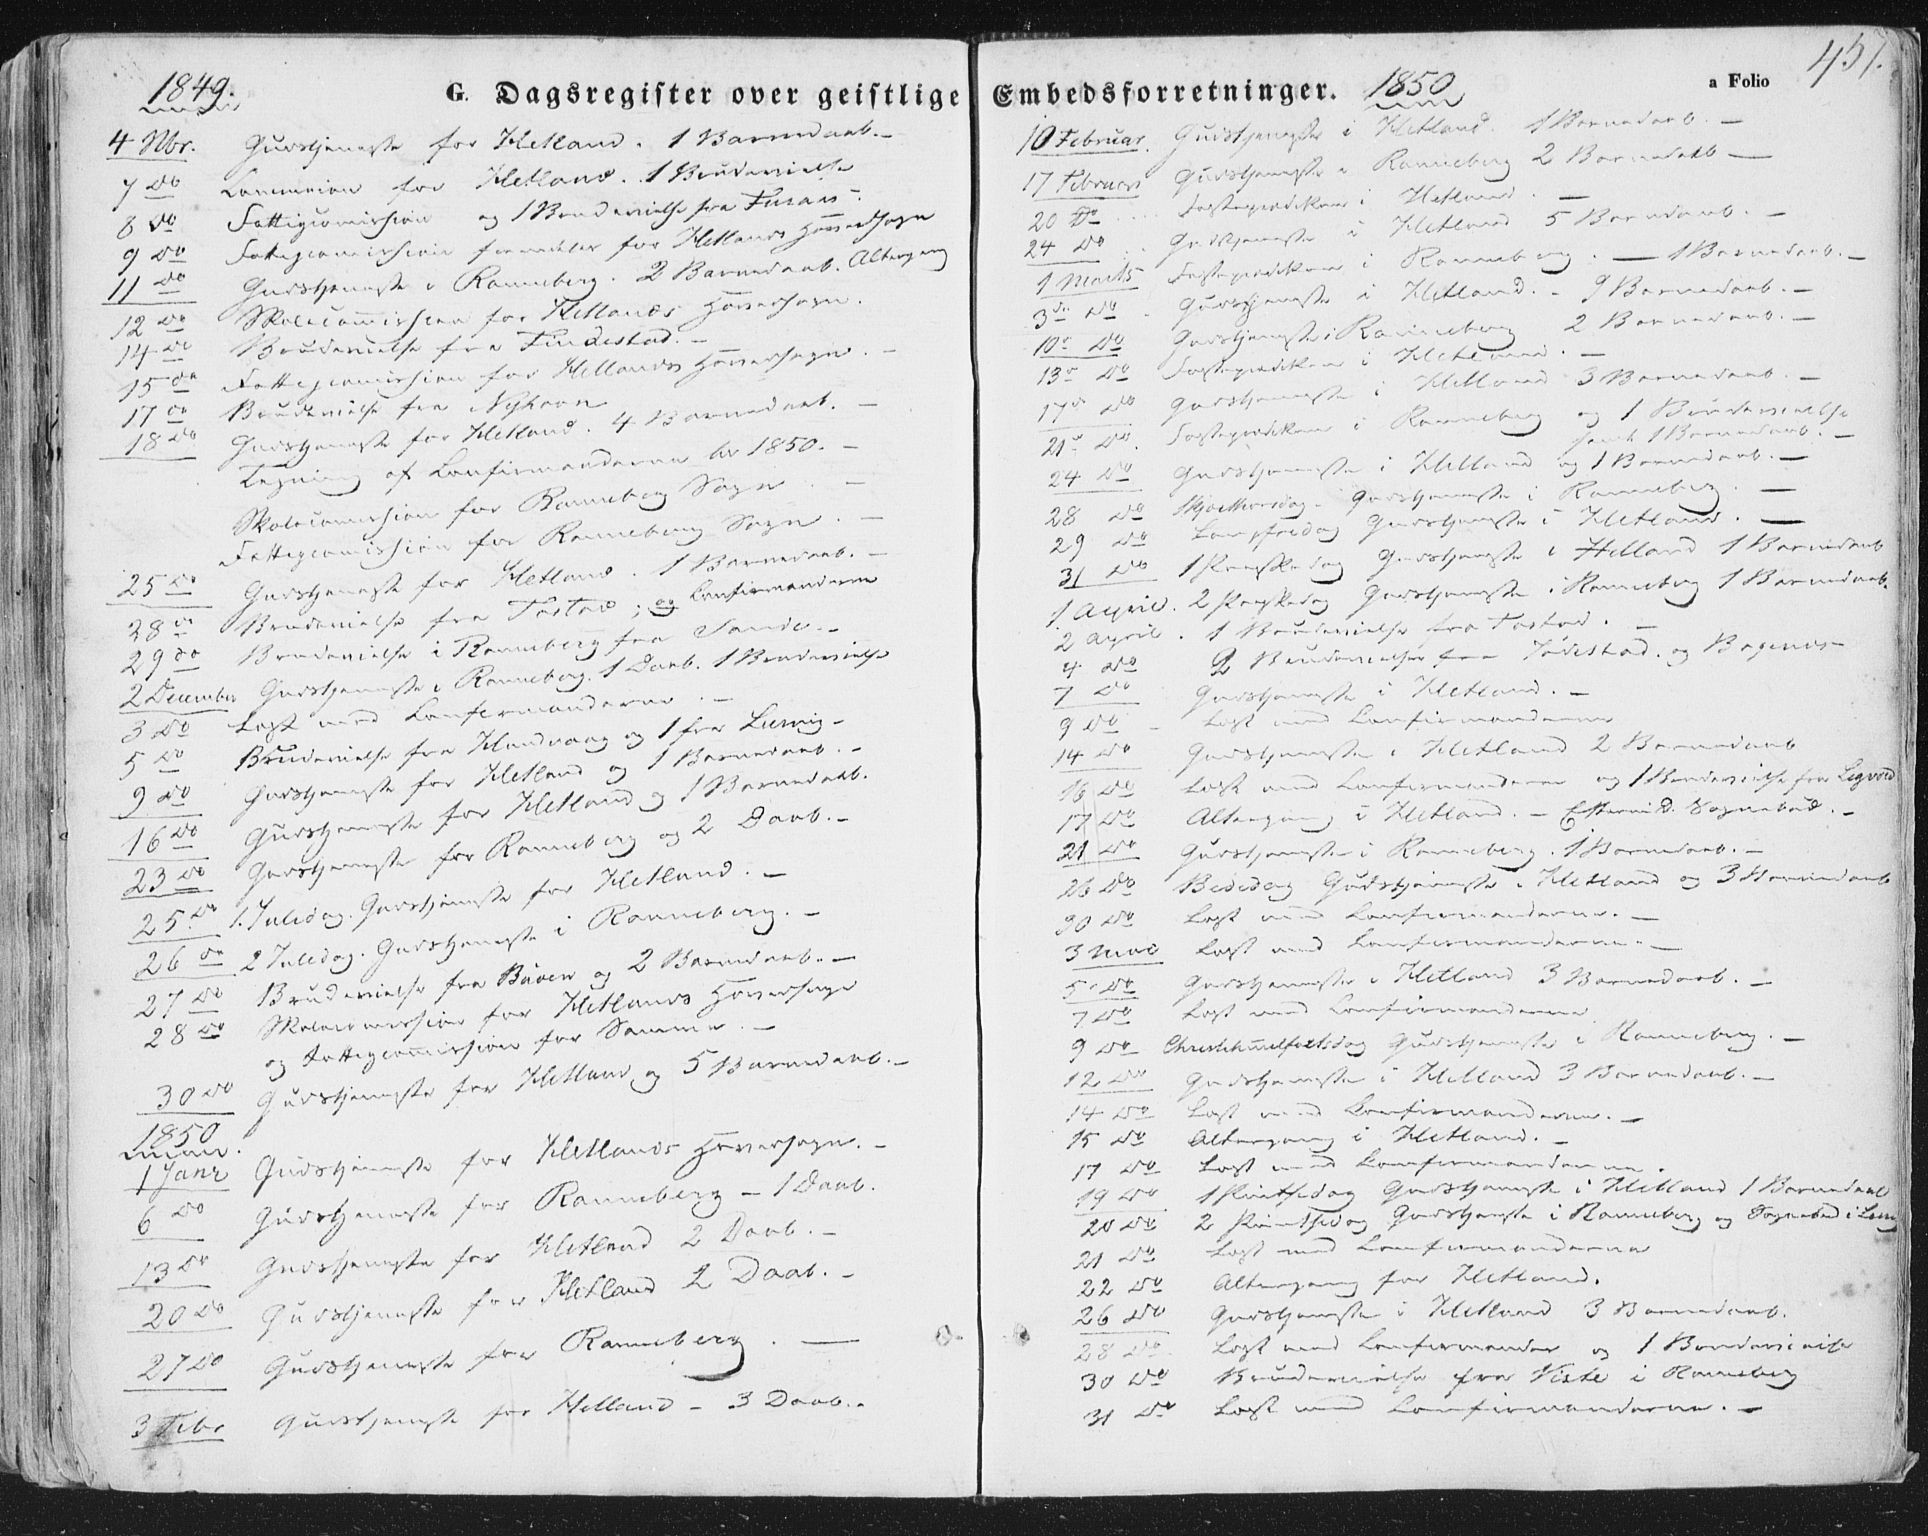 1849.
G. Dagsregister over geistlige
4 Nbr. Gudstjeneste for Hetland. 1 Barnedaab. –
7 do for Hetland. 1 Brudevielse
8 do Fattigcomission og 1 Brudevielse fra
9 do Fattigcomission for Hetlands Hovedsogn
11 do Gudstjeneste i Ranneberg. 2 Barnedaab. Altergang
12 do Skolecomission for Hetlands Hovedsogn.
14 do Brudevielse fra Findestad. –
15 do Fattigcomission for Hetlands Hovedsogn. –
17 do Brudevielse fra
18 do Gudstjeneste for Hetland. 4 Barnedaab. –
Tegning af Confirmanderne for 1850. –
Skolecomission for Ranneberg Sogn. –
Fattigcomission for Ranneberg Sogn. –
25 do Gudstjeneste for Hetland. 1 Barnedaab. –
28 do Brudevielse fra Tastad; og Confirmanderne
29 do Brudevielse i Ranneberg fra Sande. –
2 December Gudstjeneste i Ranneberg. 1 Daab. 1 Brudevielse
3 do Læst med Confirmanderne. –
5 do Brudevielse fra Hundvaag og 1 fra
9 do Gudstjeneste for Hetland og 1 Barnedaab. –
16 do Gudstjeneste for Hetland og 1 Barnedaab.
23 do Gudstjeneste for Ranneberg og 2 Daab. –
25. do 1. Juledag. Gudstjeneste for Hetland. –
26 do 2 Juledag. Gudstjeneste i Ranneberg. –
27 do Brudevielse fra Buøen og 2 Barnedaab. –
28 do Skolecomission for Hetlands Hovedsogn
og Fattigcomission for Samme. –
30 do Gudstjeneste for Hetland og 5 Barnedaab. –
1850
1 Janr Gudstjeneste for Hetlands Hovedsogn. –
6 do Gudstjeneste for Ranneberg – 1 Daab.
13 do Gudstjeneste for Hetland 2 Daab. –
20 do Gudstjeneste for Hetland 2 Daab. –
27 do Gudstjeneste for Ranneberg. –
3 Febr Gudstjeneste for Hetland – 3 Daab. –
Embedsforretninger. 1850 a Folio 451.
10 Februar. Gudstjeneste i Hetland. 1 Barnedaab. –
17 Februar Gudstjeneste i Ranneberg 2 Barnedaab –
20 Do Fasteprædiken i Hetland. –
24 do Gudstjeneste i Hetland 5 Barnedaab. –
1 Marts Fasteprædiken i Ranneberg. – 1 Barnedaab. –
3die do Gudstjeneste i Hetland. – 9 Barnedaab. –
10de do Gudstjeneste i Ranneberg 2 Barnedaab. –
13de do Fasteprædiken i Hetland. –
17de do Gudstjeneste i Hetland 3 Barnedaab. –
21de do. Fasteprædiken i Ranneberg og 1 Brudevielse
samt 1 Barnedaab. –
24 do Gudstjeneste i Hetland og 1 Barnedaab. –
28 do Skjærthorsdag. Gudstjeneste i Ranneberg. –
29 do Langfredag Gudstjeneste i Hetland. –
31 do 1 Paaskedag Gudstjeneste i Hetland 1 Barnedaab
1 April. 2 Paaskedag Gudstjeneste i Ranneberg 1 Barnedaab.
2 April. 1 Brudevielse fra Tastad. –
4 do 2 Brudevielser fra og
7 do Gudstjeneste i Hetland. –
9 do – Læst med Confirmanderne
14 do Gudstjeneste i Hetland 2 Barnedaab
do Læst med Confirmanderne og 1 Brudevielse fra
17 do Altergang i Hetland. – Eftermid. Sognebud. –
21 do Gudstjeneste i Ranneberg. 1 Barnedaab. –
26 do Bededag Gudstjeneste i Hetland og 3 Barnedaab
30 do Læst med Confirmanderne. –
3 Mai Læst med Confirmanderne. –
5 do Gudstjeneste i Hetland 3 Barnedaab. –
7 do Læst med Confirmanderne
9 do Christihimmelfartsdag Gudstjeneste i Ranneberg. –
12 do Gudstjeneste i Hetland 3 Barnedaab. –
14 do Læst med Confirmanderne. –
15 do Altergang i Hetland. –
17 do Læst med Confirmanderne.
19 do 1 Pintsedag Gudstjeneste i Hetland 1 Barnedaab
20 do 2 Pintsedag Gudstjeneste i Ranneberg og Sognebud i
21 do Læst med Confirmanderne
22 do Altergang for Hetland.
26 do Gudstjeneste i Hetland 3 Barnedaab.
28 do Læst med Confirmander og 1 Brudevielse
30 do Brudevielse fra Viste i Ranneberg
31 do Læst med Confirmanderne. –